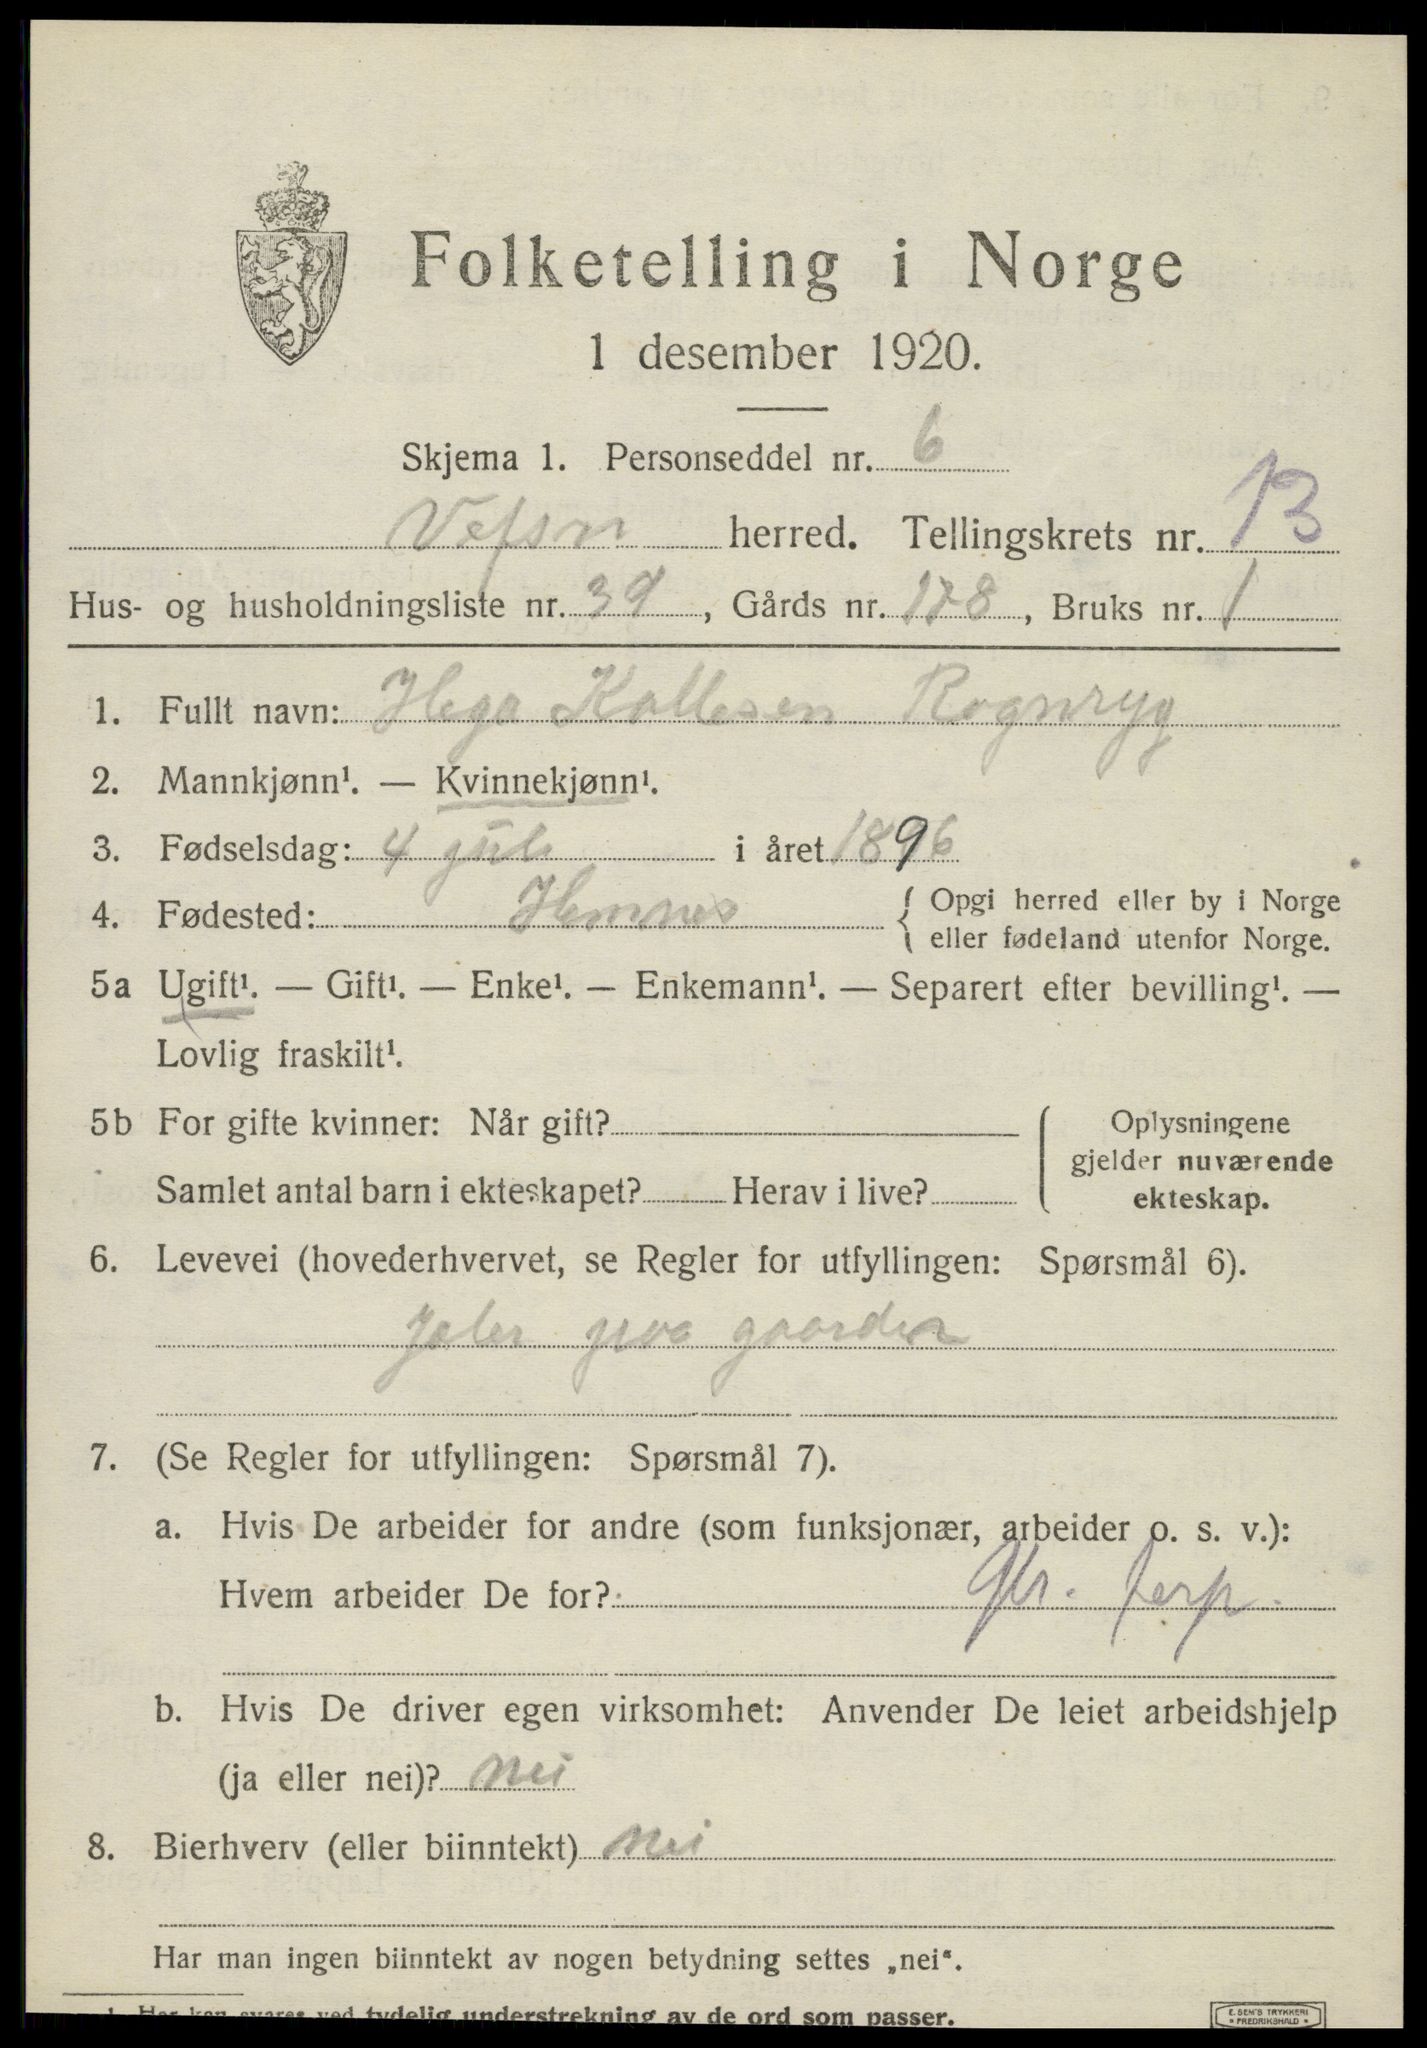 Folketelling i Norge
1 desember 1920.
Skjema 1. Personseddel nr. 6
Vefsn herred. Tellingskrets nr. 13
Hus- og husholdningsliste nr. 39, Gårds nr. 178, Bruks nr. 1
1. Fullt navn: Rognryg
2. Mannkjønn¹. — Kvinnekjønn¹.
3. Fødselsdag: 4 juli i året 1896
4. Fødested: Hemnes { Opgi herred eller by i Norge
eller fødeland utenfor Norge.
5a Ugift¹. — Gift¹. — Enke¹. — Enkemann¹. — Separert efter bevilling¹. —
Lovlig fraskilt¹.
5b For gifte kvinner: Når gift?
Samlet antal barn i ekteskapet? Herav i live?
Oplysningene
gjelder nuværende
ekteskap.
6. Levevei (hovederhvervet, se Regler for utfyllingen: Spørsmål 6).
paa gaarden
7. (Se Regler for utfyllingen: Spørsmål 7).
a. Hvis De arbeider for andre (som funksjonær, arbeider o. s. v.):
Hvem arbeider De for?
b. Hvis De driver egen virksomhet: Anvender De leiet arbeidshjelp
(ja eller nei)? nei
8. Bierhverv (eller biinntekt) nei
Har man ingen biinntekt av nogen betydning settes „nei“.
1 Her kan svares ved tydelig understrekning av de ord som passer.
E. SEM'S TRYKKERI
FREDRIKSHALD